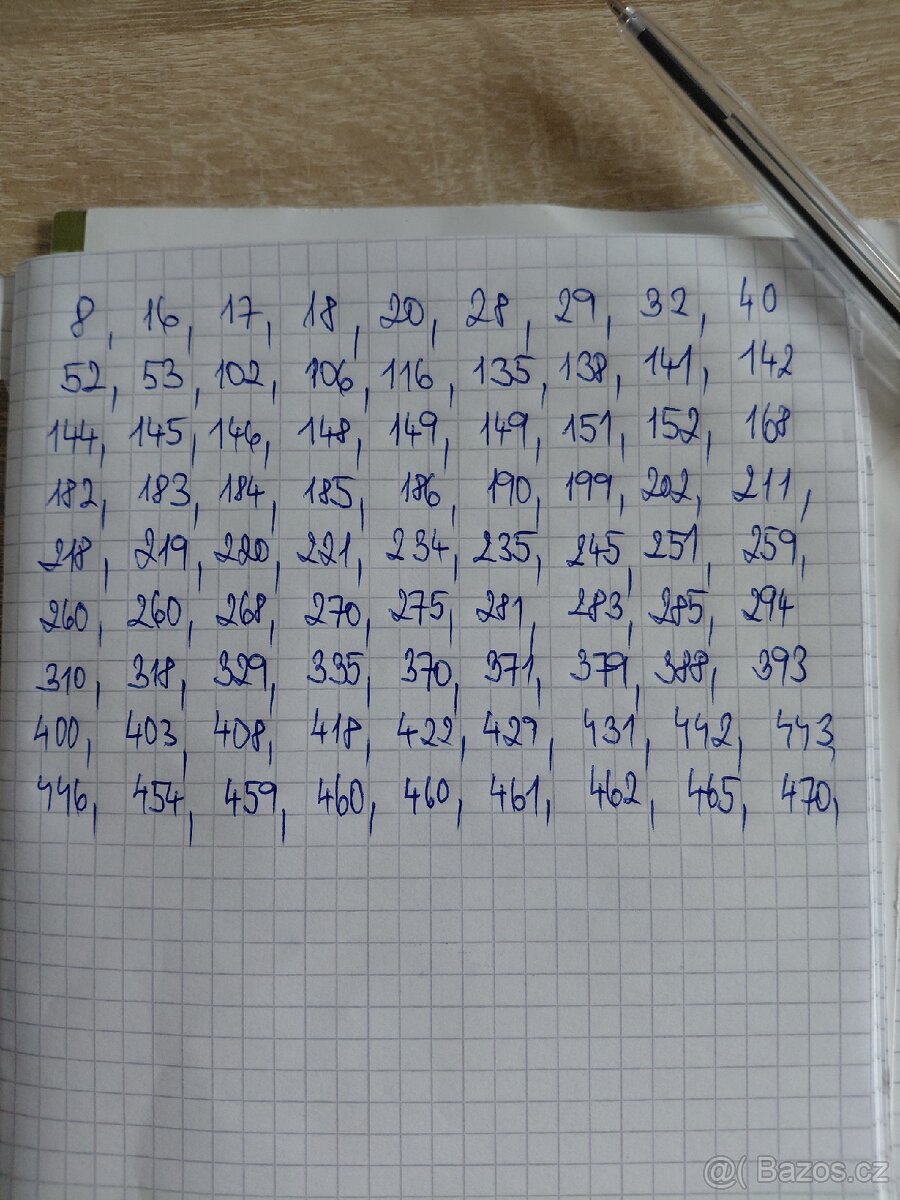 8, 16, 17, 18, 20, 28, 29, 32, 40
52, 53, 102, 106, 116, 135, 138, 141, 142
144, 145, 146, 148, 149, 149, 151, 152, 168
182, 183, 184, 185, 186, 190, 199, 202, 211,
218, 219, 220, 221, 234, 235, 245, 251, 259,
260, 260, 268, 270, 275, 281, 283, 285, 294
310, 318, 329, 335, 370, 371, 379, 388, 393
400, 403, 408, 418, 422, 427, 431, 442, 443,
446, 454, 459, 460, 460, 461, 462, 465, 470,
@( Bazos.cz